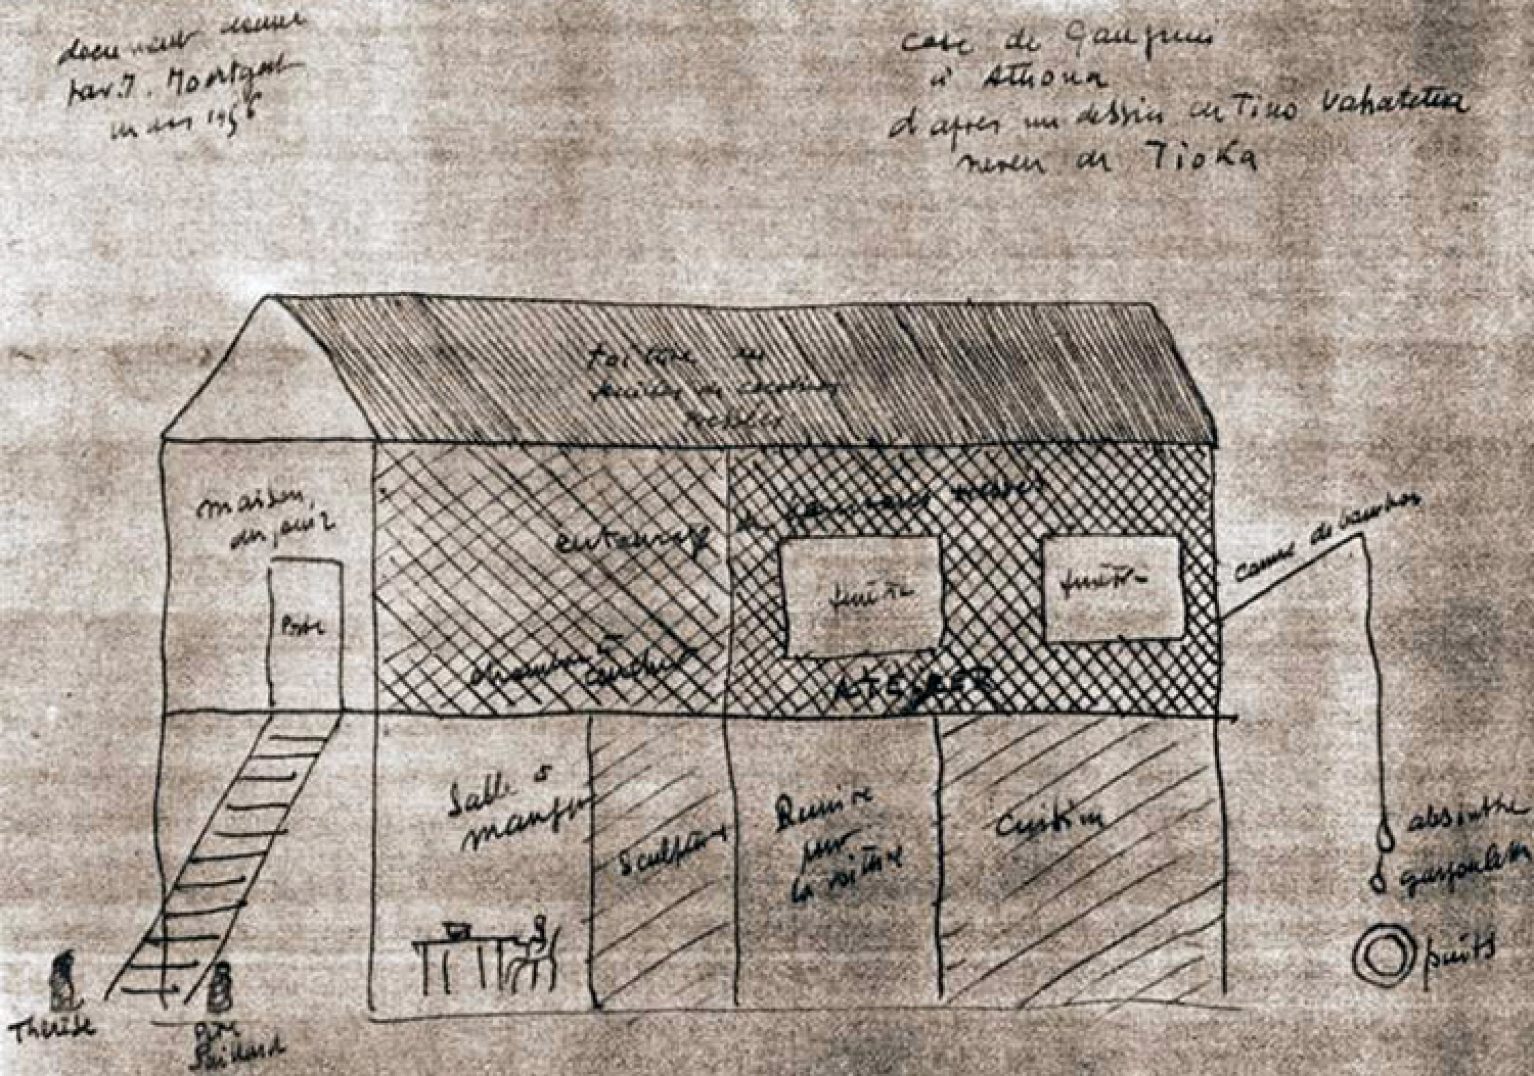 document donné
par J. Moortgat
case de Gauguin
à Atuona
d'après un dessin de Timo Vahatetua
neveu de Tioka
toiture en
feuilles de cocotiers
tressées
maison
du jouir
Porte
entourage en bambous tressés
fenêtre
fenêtre
canne de bambou
chambre à
coucher
ATELIER
Salle à
manger
sculpture
Remise
pour
la voiture
Cuisine
absinthe
gargoulette
puits
Thérèse
Père
Paillard